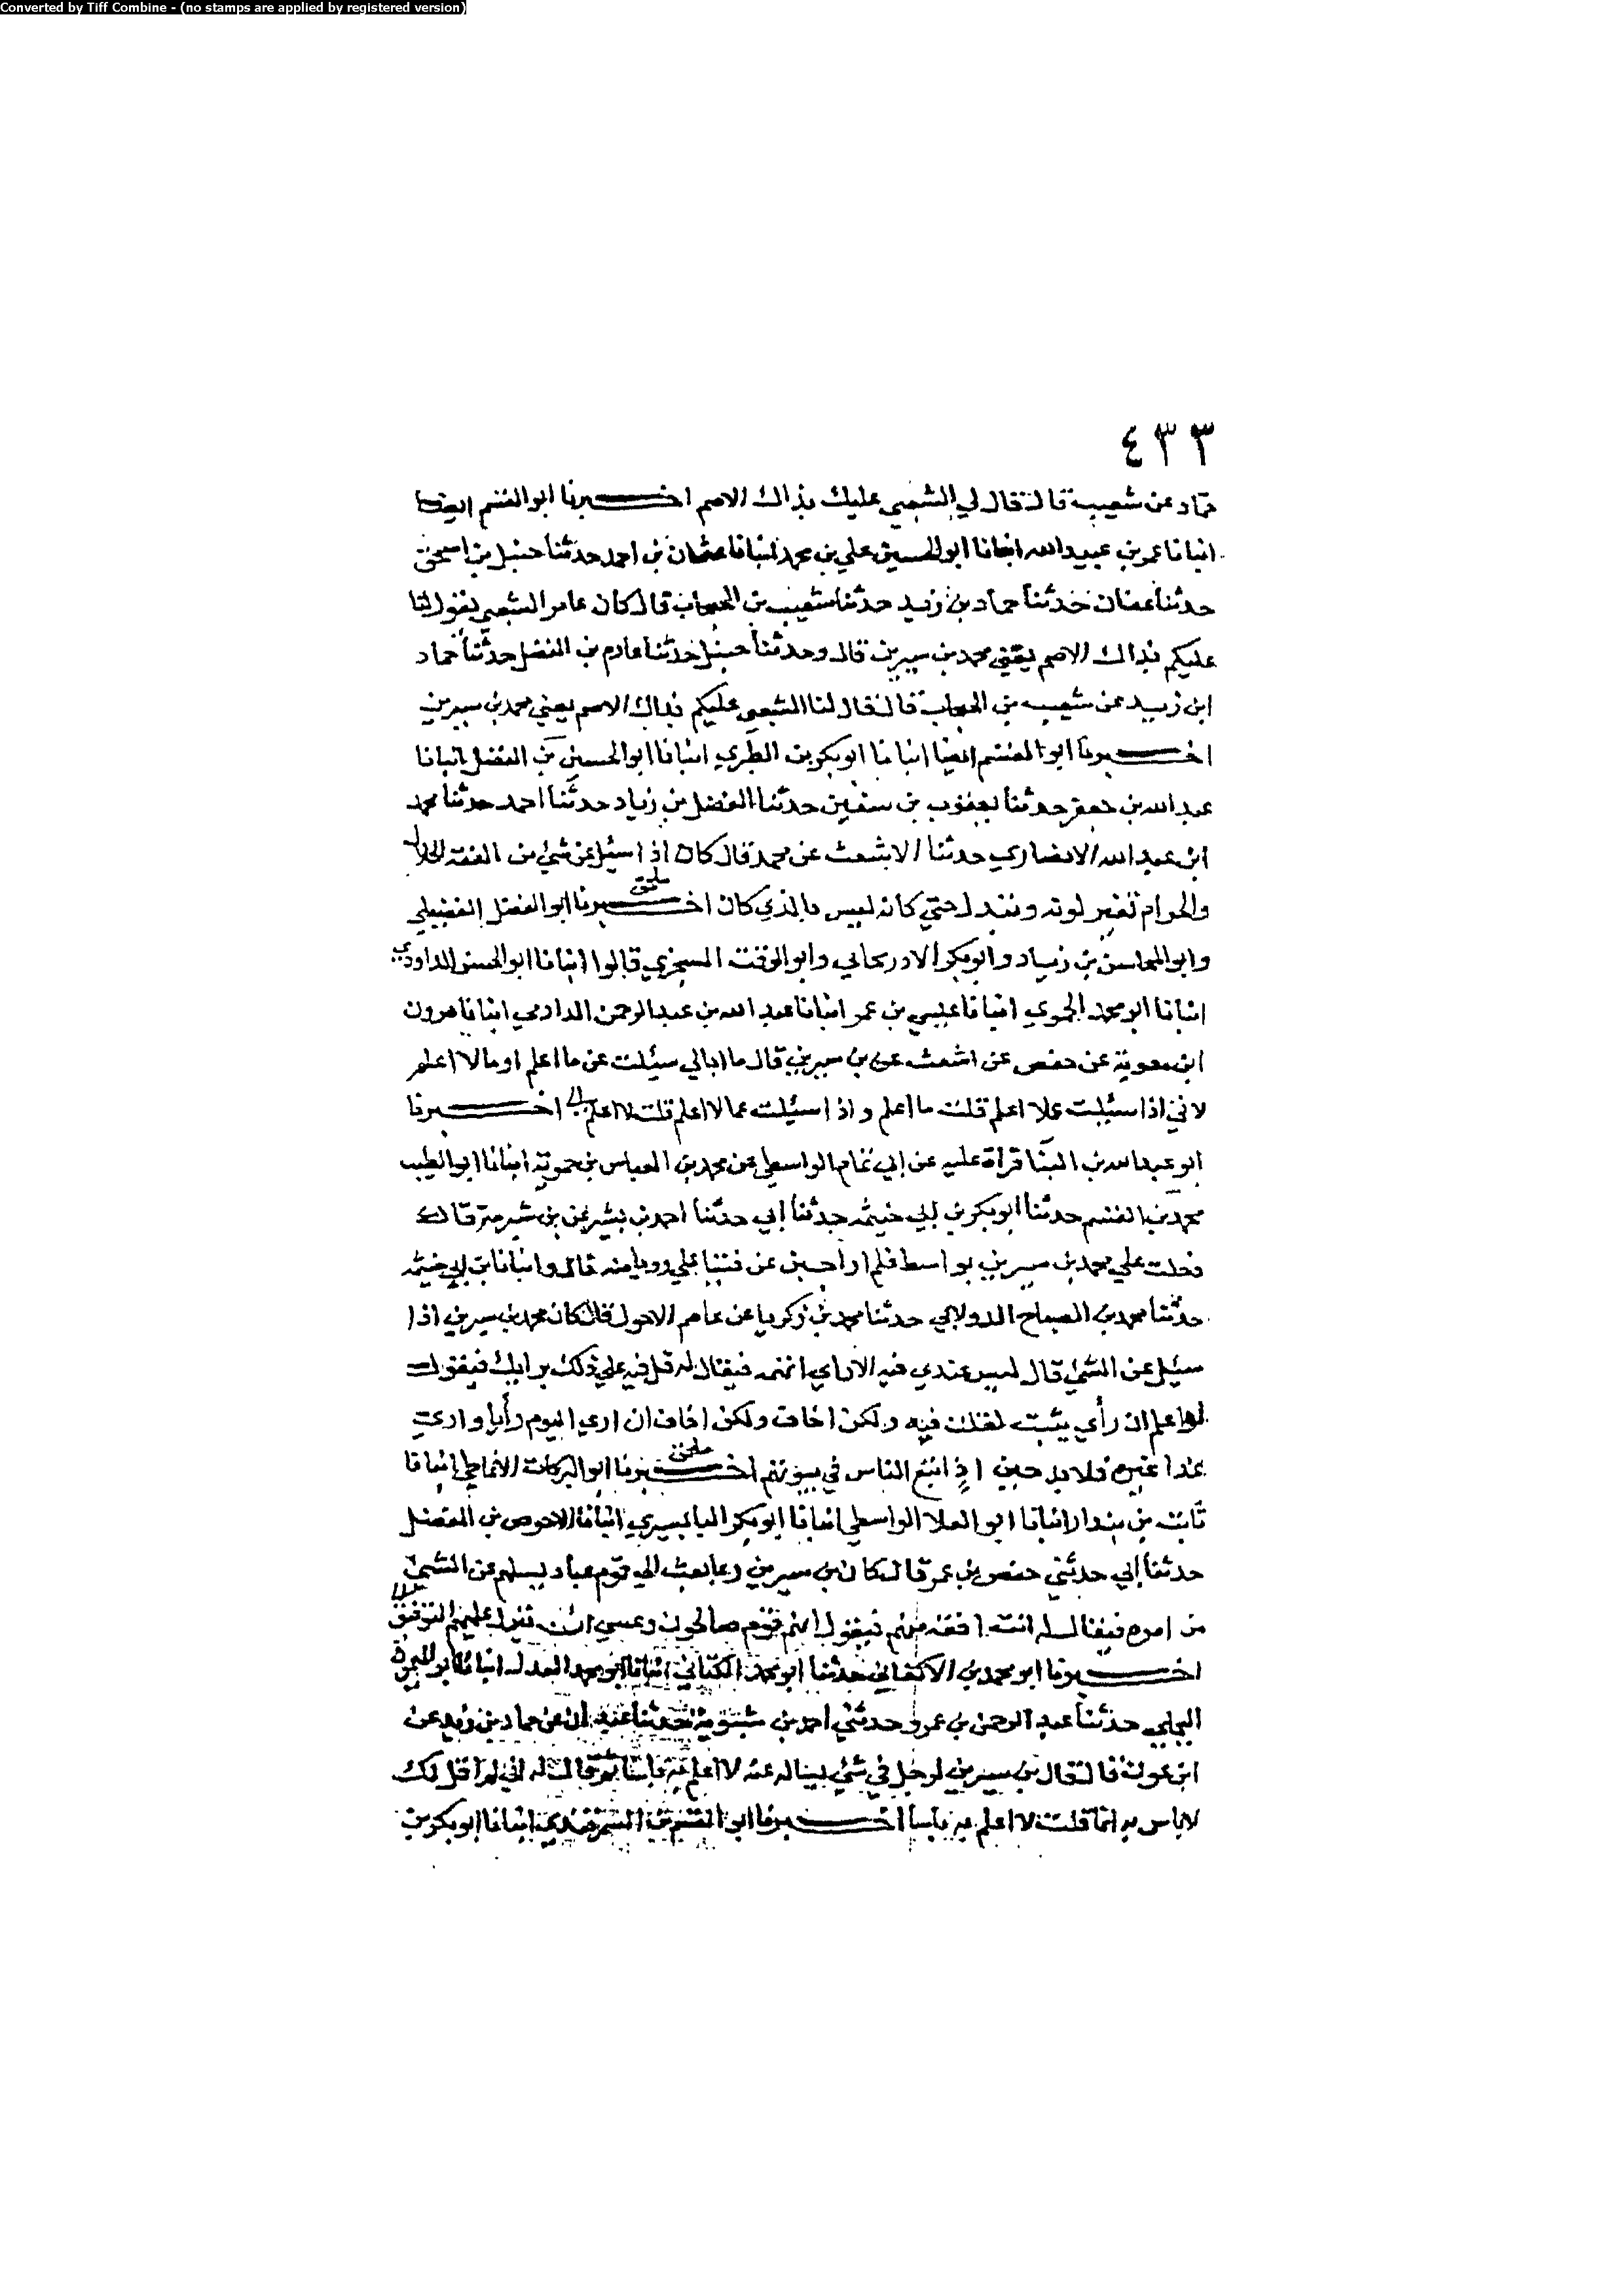 Converted by Tiff Combine - (no stamps are applied by registered version)
٤٣٣
حماد عن شعيب قال قال لي الشعبي عليك بذاك الاصم اخبرنا ابو القسم ايضا
انبانا عمر بن عبيد الله انبانا ابو الحسين علي بن محمد انبانا عثمان بن احمد حدثنا حنبل بن اسحق
حدثنا عفان حدثنا حماد بن زيد حدثنا شعيب بن الحبحاب قال كان عامر الشعبي يقول لنا
عليكم بذاك الاصم يعني محمد بن سيرين قال وحدثنا حنبل حدثنا عارم بن الفضل حدثنا حماد
ابن زيد عن شعيب بن الحبحاب قال قال لنا الشعبي عليكم بذاك الاصم يعني محمد بن سيرين
اخبرنا ابو القسم ايضا انبانا ابو بكر بن الطبري انبانا ابو الحسين بن الفضل انبانا
عبد الله بن جعفر حدثنا يعقوب بن سفين حدثنا الفضل بن زياد حدثنا احمد حدثنا محمد
ابن عبد الله الانصاري حدثنا الاشعث عن محمد قال كان اذا سئل عن شئ من الفقه الحلال
والحرام تغير لونه وتبدل حتي كانه ليس بالذي كان ملحق اخبرنا ابو الفضل الفضيلي
وابو المحاسن بن زياد وابو بكر الادرىحاني وابو الوقت السجزي قالوا انبانا ابو الحسن الداودي
انبانا ابو محمد الحموي انبانا عيسي بن عمر انبانا عبد الله بن عبد الرحمن الدارمي انبانا هرون
ابن معوية عن حفص عن اشعث عن بن سيرين قال ما ابالي سئلت عن ما اعلم او ما لا اعلم
لاني اذا سئلت عما اعلم قلت ما اعلم واذا سئلت عما لا اعلم قلت لا اعلم الي اخبرنا
ابو عبد الله بن البنا قراة عليه عن ابي تمام الواسطي عن محمد بن العباس بن حموية انبانا ابو الطيب
محمد بن القسم حدثنا ابو بكر بن ابي خيثمه حدثنا ابي حدثنا احمد بن بشير عن بن شبرمة قال
دخلت علي محمد بن سيرين بواسط فلم ار اجبن عن فتيا علي رويا منه قال وانبانا بن ابي خيثمه
حدثنا محمد بن الصباح الدولابي حدثنا محمد بن زكريا عن عاصم الاحول قال كان محمد بن سيرين اذا
سئل عن الشئ قال ليس عندي فيه الا راي اتهمه فيقال له قل فيه علي ذلك برايك فيقول
لو اعلم ان رأي يثبت لقلت فيه ولكن اخاف ولكن اخاف ان اري اليوم رأيا واري
غدا غيره فلا بد حين اذ اتبع الناس في بيوتهم ملحق اخبرنا ابو البركات الانماطي انبانا
ثابت بن بندار انبانا ابو العلا الواسطي انبانا ابو بكر البابسيري انبانا الاحوص بن المفضل
حدثنا ابي حدثني حفص بن عمر قال كان بن سيرين ربما بعث الي قوم عباد يسلهم عن الشئ
من امره فيقال له انت افقه منهم فيقول انهم قوم صالحون وعسي ان تنزل عليهم التوفيق
اخبرنا ابو محمد بن الاكفاني حدثنا ابو محمد الكتاني انبانا ابو محمد العدل انبانا ابو الميمون
البجلي حدثنا عبد الرحمن بن عمرو حدثني احمد بن شبوية حدثنا عن حماد بن زيد عن
ابن عون قال قال بن سيرين لرجل في شئ يساله عنه لا اعلم به باسا ثم قال له اني لم اقل لك
لا باس به انما قلت لا اعلم به باسا اخبرنا ابو القسم بن السمرقندي انبانا ابو بكر بن